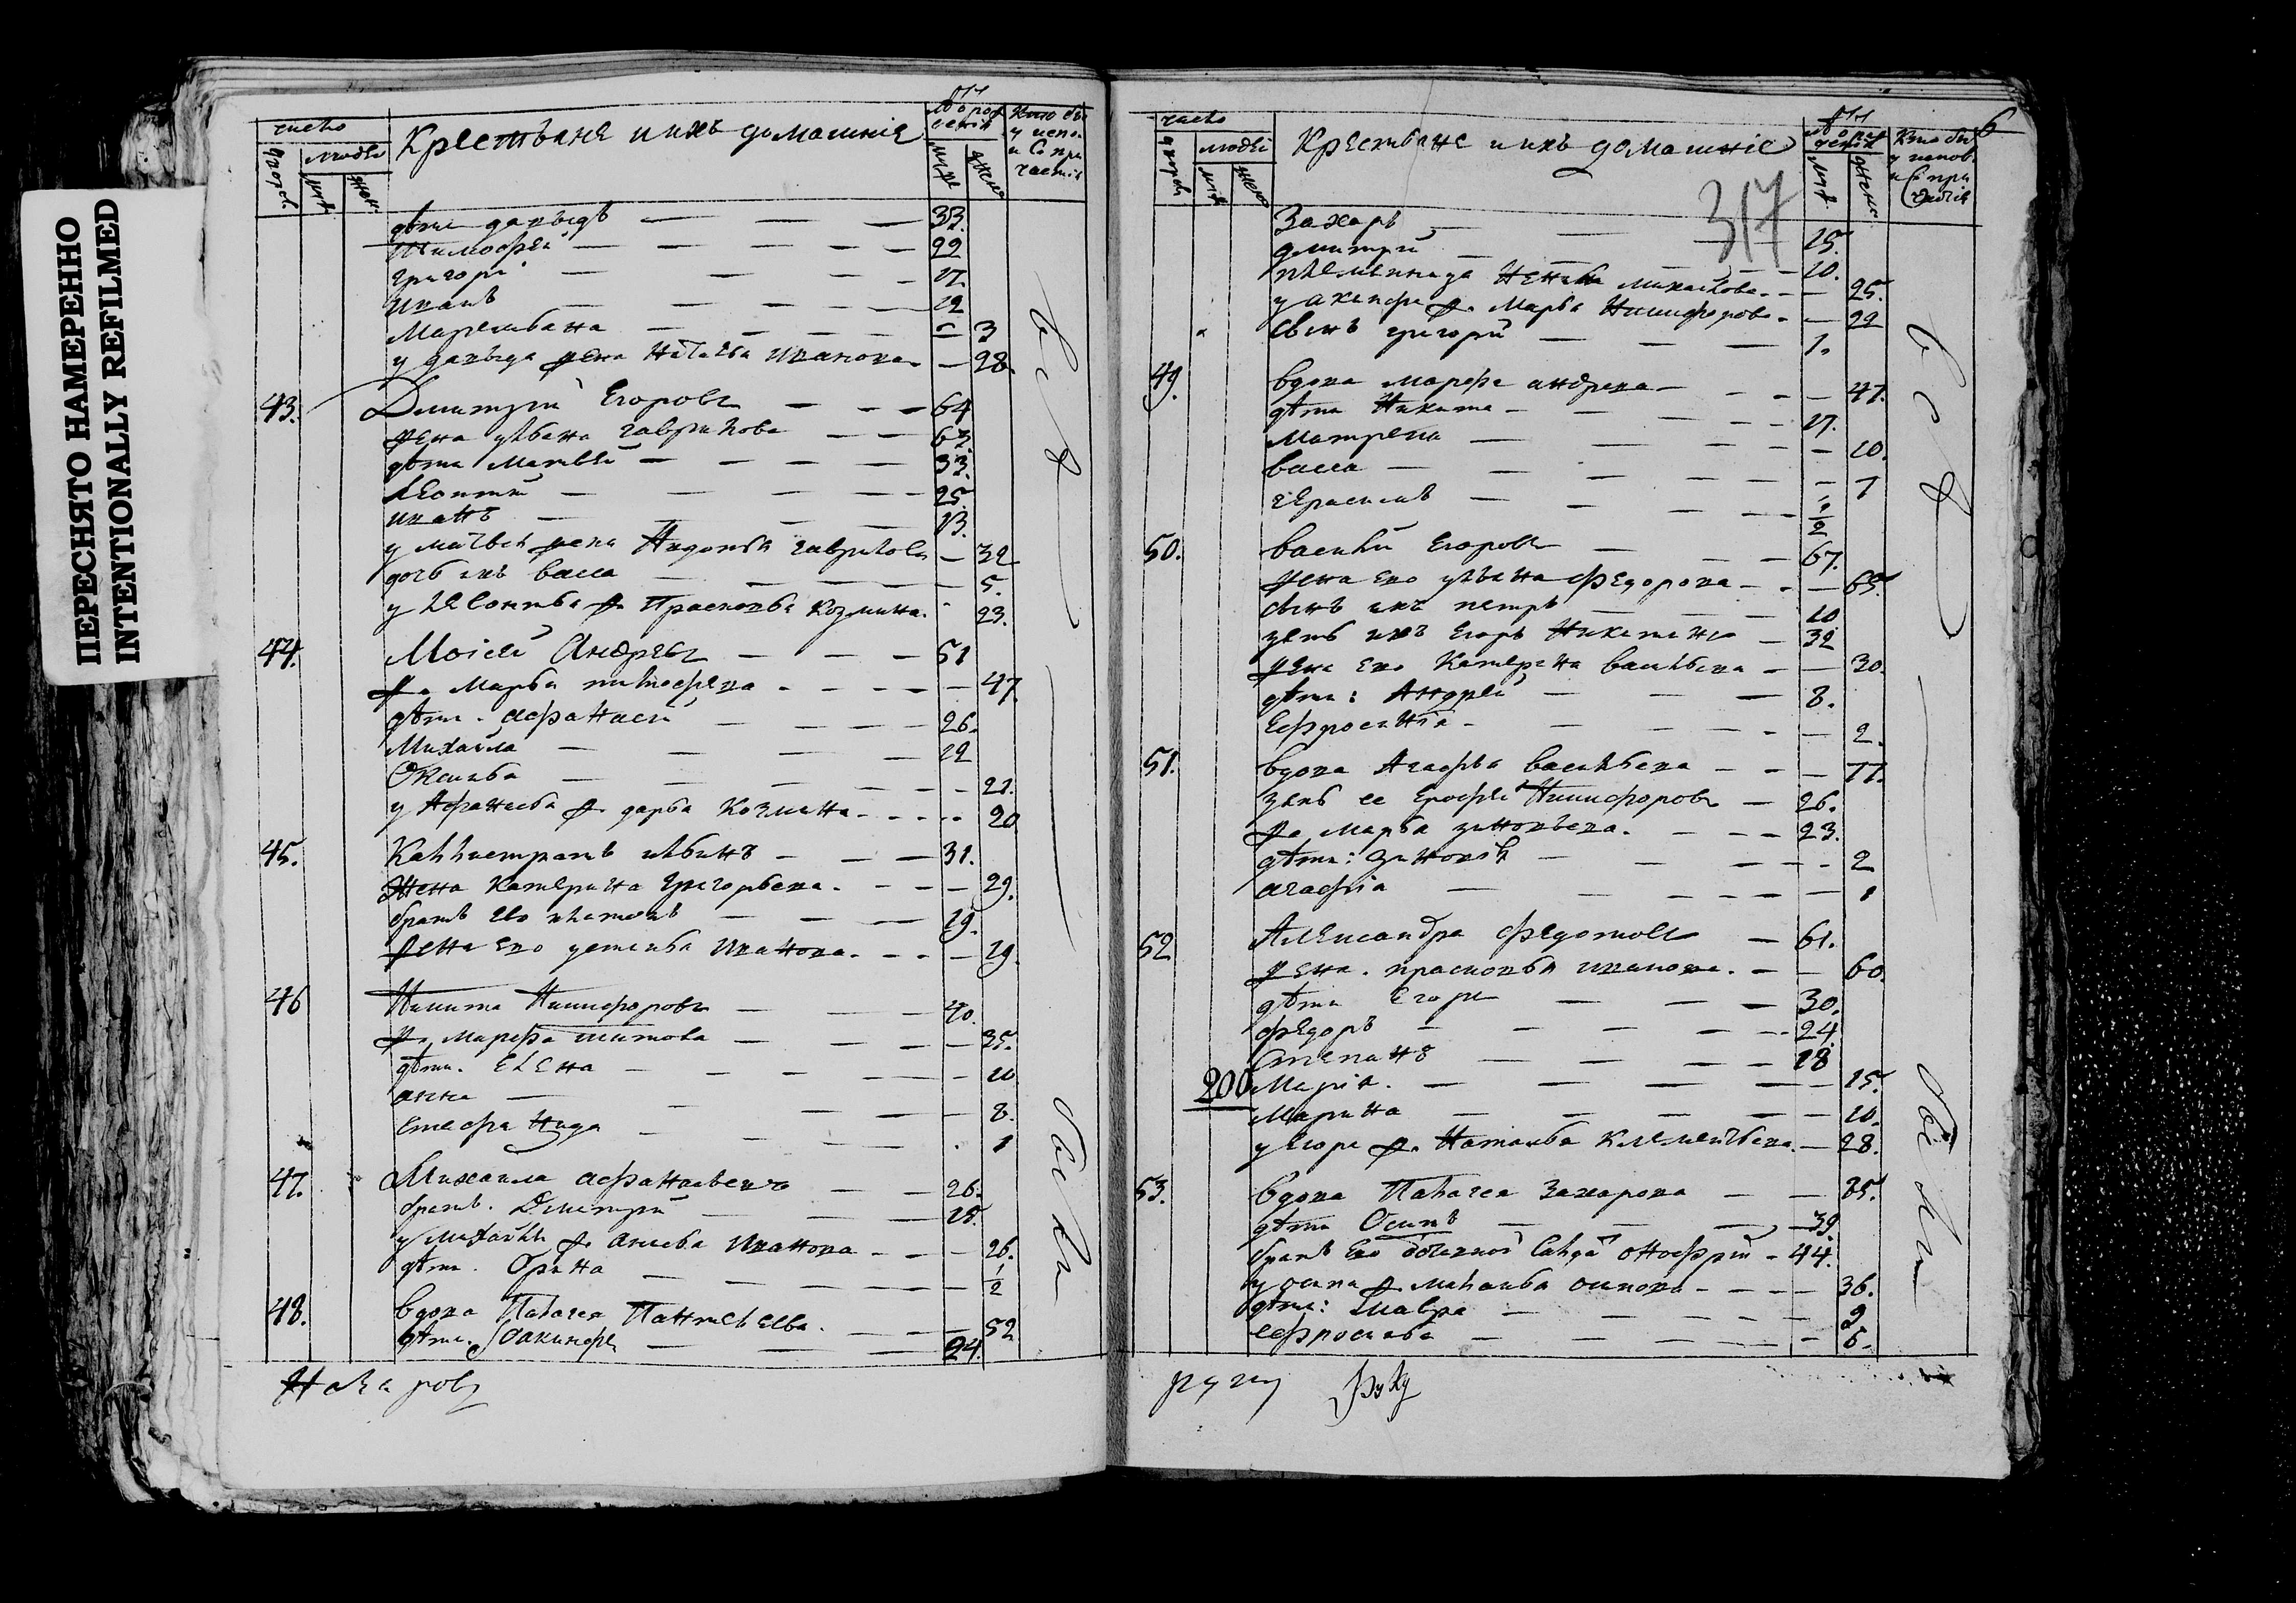 ПЕРЕСНЯТО НАМЕРЕННО
INTENTIONALLY REFILMED
число
дворовъ
людей
муж
жен.
Крестьяне и ихъ домашнія
Лѣта рожденія
муже
жено
Кто былъ у испо. и Св. причастія
дѣти давыдъ — — — 33.
тимофей — — — — 22
григори — — — —
иванъ — — — —
Маремьяна — — — — 3
у давыда жена Наталья иванова — 28.
43. Дмитрій Егоровъ — — — 64
жена ульяна гаврилова — — 63
дѣти Матвѣй — — — — 33.
леонтій — — — — 25
иванъ — — — — 13.
у матвея жена Авдотья гаврилова — 32
дочь ихъ васса — — — — 5.
у леонтья ж. Прасковья козмина. 23.
44. Моисей Андреевъ — — — 51
ж. Марья тимофеева — — — — 47.
дѣти. афанасей — — — — 26.
Михайла — — — —
Оксинья — — — — 21.
у Афанасья ж. дарья Козмина — — — 20
45. Каллистратъ ильинъ — — — 31.
Жена катерина григорьева — — — 29.
братъ его платонъ — — — 19.
жена ево устинья иванова — — — 19.
46 Никита Никифоровъ — — — 40.
ж. Марфа титова — — — — 35.
дѣти. Елена — — — — 10
анна — — — — 8.
Стефанида — — — — 1
47. Михаила афанасьевичъ — — 26.
братъ. Дмитрій — — —
у Михайлы ж. анисья иванова — — — 26.
дѣти. Орина — — — — 1/2
48. вдова Палагея Пантелѣева — — — 52
дѣти. Иакинфъ — — — — 24.
всѣ
были
число
дворовъ
людей
муж
жено
Крестьяне и ихъ домашніе
Лѣта рожденія
муж.
жено
Кто былъ у исповѣ. и Св. причастія
6
317
Захаръ — — — 15.
дмитрій — — — — 10.
племянница михайлова — — 25.
у акинфа ж. Марья Никифорова — — 22
сынъ григорій — — — 1.
49. вдова марфа андреева — — — 47.
дѣти Никита — — — — 17.
матрена — — — — 10.
васса — — — — 7
герасимъ — — — — 1/2
50. василий Егоровъ — — — 67.
жена ево ульяна федорова — — — 65.
сынъ ихъ петръ — — — 10
зять ихъ Егоръ Никитинъ — 32
жена ево Катерина васильева — — 30.
дѣти: Андрей — — — 8.
Ефросинія — — — — 2.
51. вдова Агафья васильева — — — 77.
зять ее ерофей Никифоровъ — 26.
ж. марья зиновьева — — — 23.
дѣти: зиновій — — — — 2
агафія — — — — 1
52 Александра федотовъ — 61.
жена. прасковья иванова — — 60
дѣти Егоръ — — — 30.
федоръ — — — — 24
Степанъ — — — 18
200
Марія. — — — — 15.
Марина — — — — 10.
у Егора ж. Наталья Клементьева — 28.
53. вдова Палагея Захарова — —
дѣти Осипъ — — — 39.
братъ Ево солдатъ онофрій — 44.
у осипа ж. маланья осипова — — — 36.
дѣти: мавра — — — — 9
ефросинья — — — — 6.
всѣ
были
руку